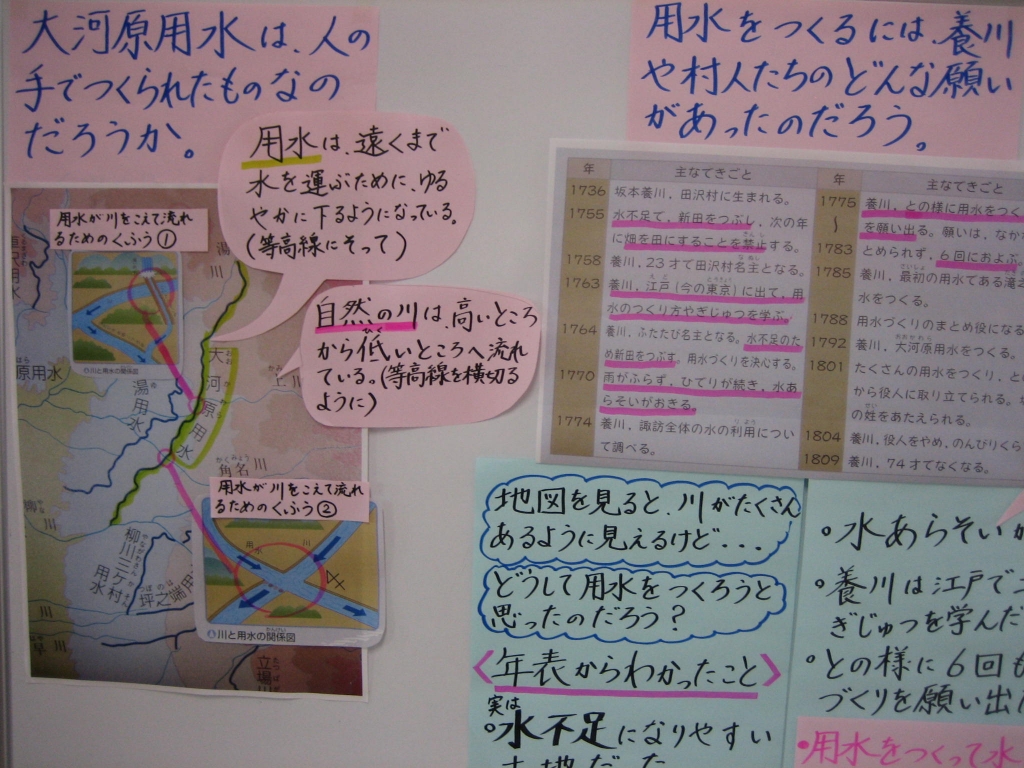 大河原用水は、人の
手でつくられたものなの
だろうか。
用水は、遠くまで
水を運ぶために、ゆる
やかに下るようになっている。
(等高線にそって)
自然の川は、高いところ
から低いところへ流れ
ている。(等高線を横切る
ように)
用水が川をこえて流れ
るためのくふう①
川と用水の関係図
原用水
湯用水
湯川
大河原用水
上川
角名川
用水が川をこえて流れ
るためのくふう②
用水
川
川と用水の関係図
柳川
柳川三ケ村用水
坪之端用
早川
立場川
用水をつくるには、養川
や村人たちのどんな願い
があったのだろう。
年 主なできごと
1736 坂本養川、田沢村に生まれる。
1755 水不足で、新田をつぶし、次の年
に畑を田にすることを禁止する。
1758 養川、23才で田沢村名主となる。
1763 養川、江戸(今の東京)に出て、用
水のつくり方やぎじゅつを学ぶ。
1764 養川、ふたたび名主となる。水不足のた
め新田をつぶす。用水づくりを決心する。
1770 雨がふらず、ひでりが続き、水あ
らそいがおきる。
1774 養川、諏訪全体の水の利用につい
て調べる。
年 主なできごと
1775 養川、との様に用水をつく
〜 を願い出る。願いは、なか
1783 とめられず、6回におよぶ
1785 養川、最初の用水である滝之
水をつくる。
1788 用水づくりのまとめ役になる
1792 養川、大河原用水をつくる。
1801 たくさんの用水をつくり、と
から役人に取り立てられる。
の姓をあたえられる。
1804 養川、役人をやめ、のんびりくら
1809 養川、74才でなくなる。
地図を見ると、川がたくさん
あるように見えるけど・・・
どうして用水をつくろうと
思ったのだろう?
〈年表からわかったこと〉
実は
・水不足になりやすい
土地だった
・水あらそいが
・養川は江戸で
ぎじゅつを学んだ
・との様に6回も
づくりを願い出
・用水をつくって水